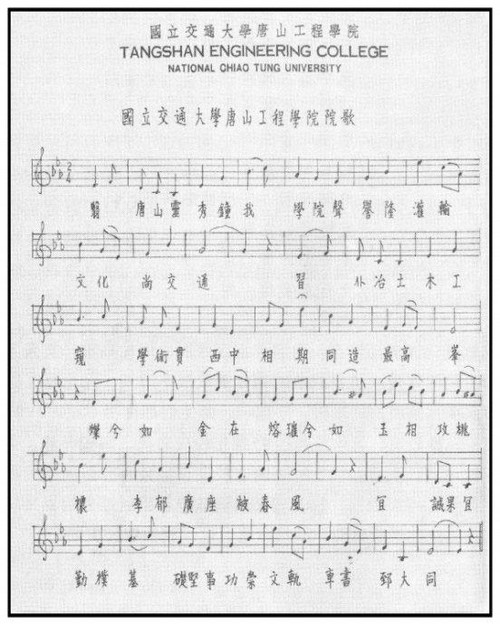 國立交通大學唐山工程學院
TANGSHAN ENGINEERING COLLEGE
NATIONAL CHIAO TUNG UNIVERSITY
國立交通大學唐山工程學院院歌
2 4
翳 唐山靈秀鐘我 學院聲譽隆灌輸
文化 尚交通 習 礦冶土木工
窺 學術貫西中相期同造最高峯
燦兮如 金在熔璀兮如 玉相攻桃
穠 李郁廣座被春風 宜 誠果宜
勤樸基 礎堅事功崇文軌車書郅大同